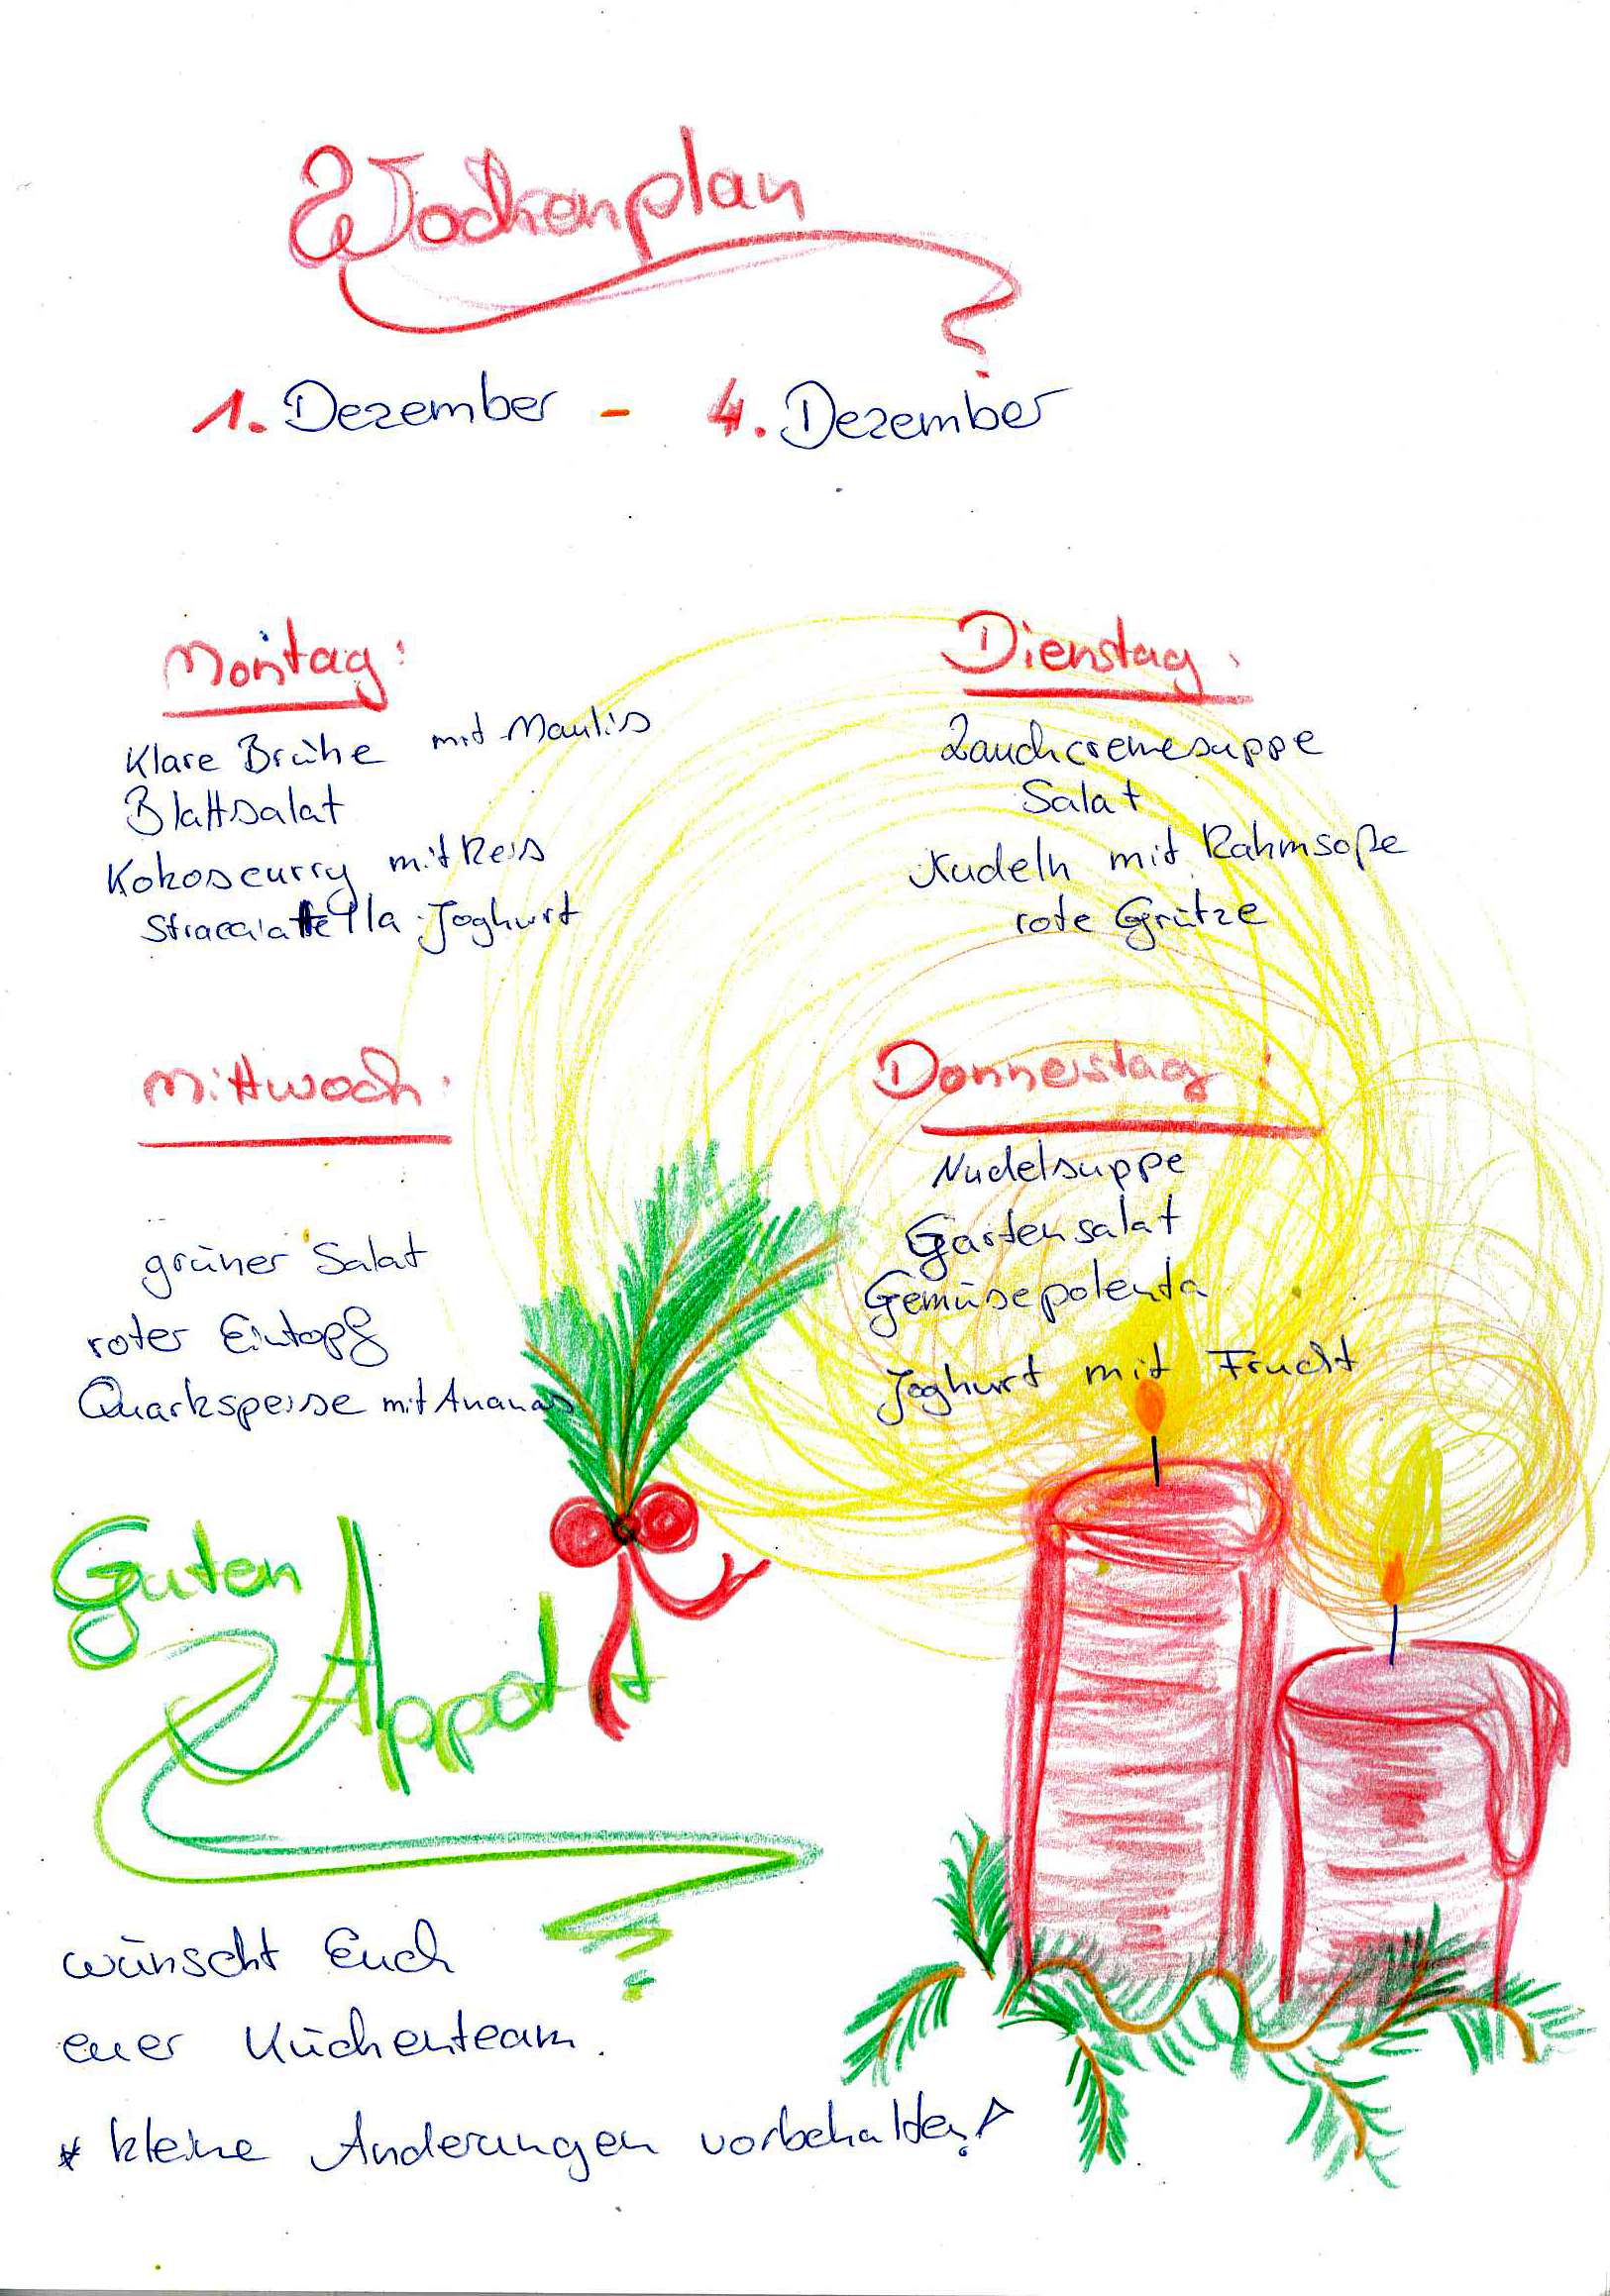 Wochenplan
1. Dezember - 4. Dezember
Montag:
Klare Brühe mit Maultis
Blattsalat
Kokoscurry mit Reis
Stracciatella Joghurt
Dienstag:
Lauchcremesuppe
Salat
Nudeln mit Rahmsoße
rote Grütze
Mittwoch:
grüner Salat
roter Eintopf
Quarkspeise mit Ananas
Donnerstag:
Nudelsuppe
Gartensalat
Gemüsepolenta
Joghurt mit Frucht
Guten
Appetit
wünscht Euch
euer Küchenteam.
* kleine Änderungen vorbehalten!